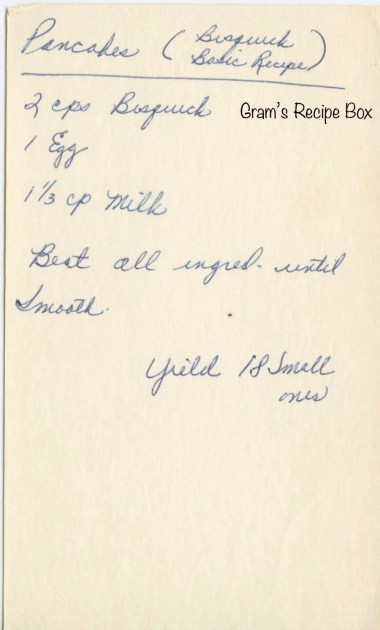 Pancakes (Bisquick
Basic Recipe)
2 cps Bisquick
Gram's Recipe Box
1 Egg
1 1/3 cp Milk
Beat all ingred. until
Smooth.
Yield 18 Small
ones